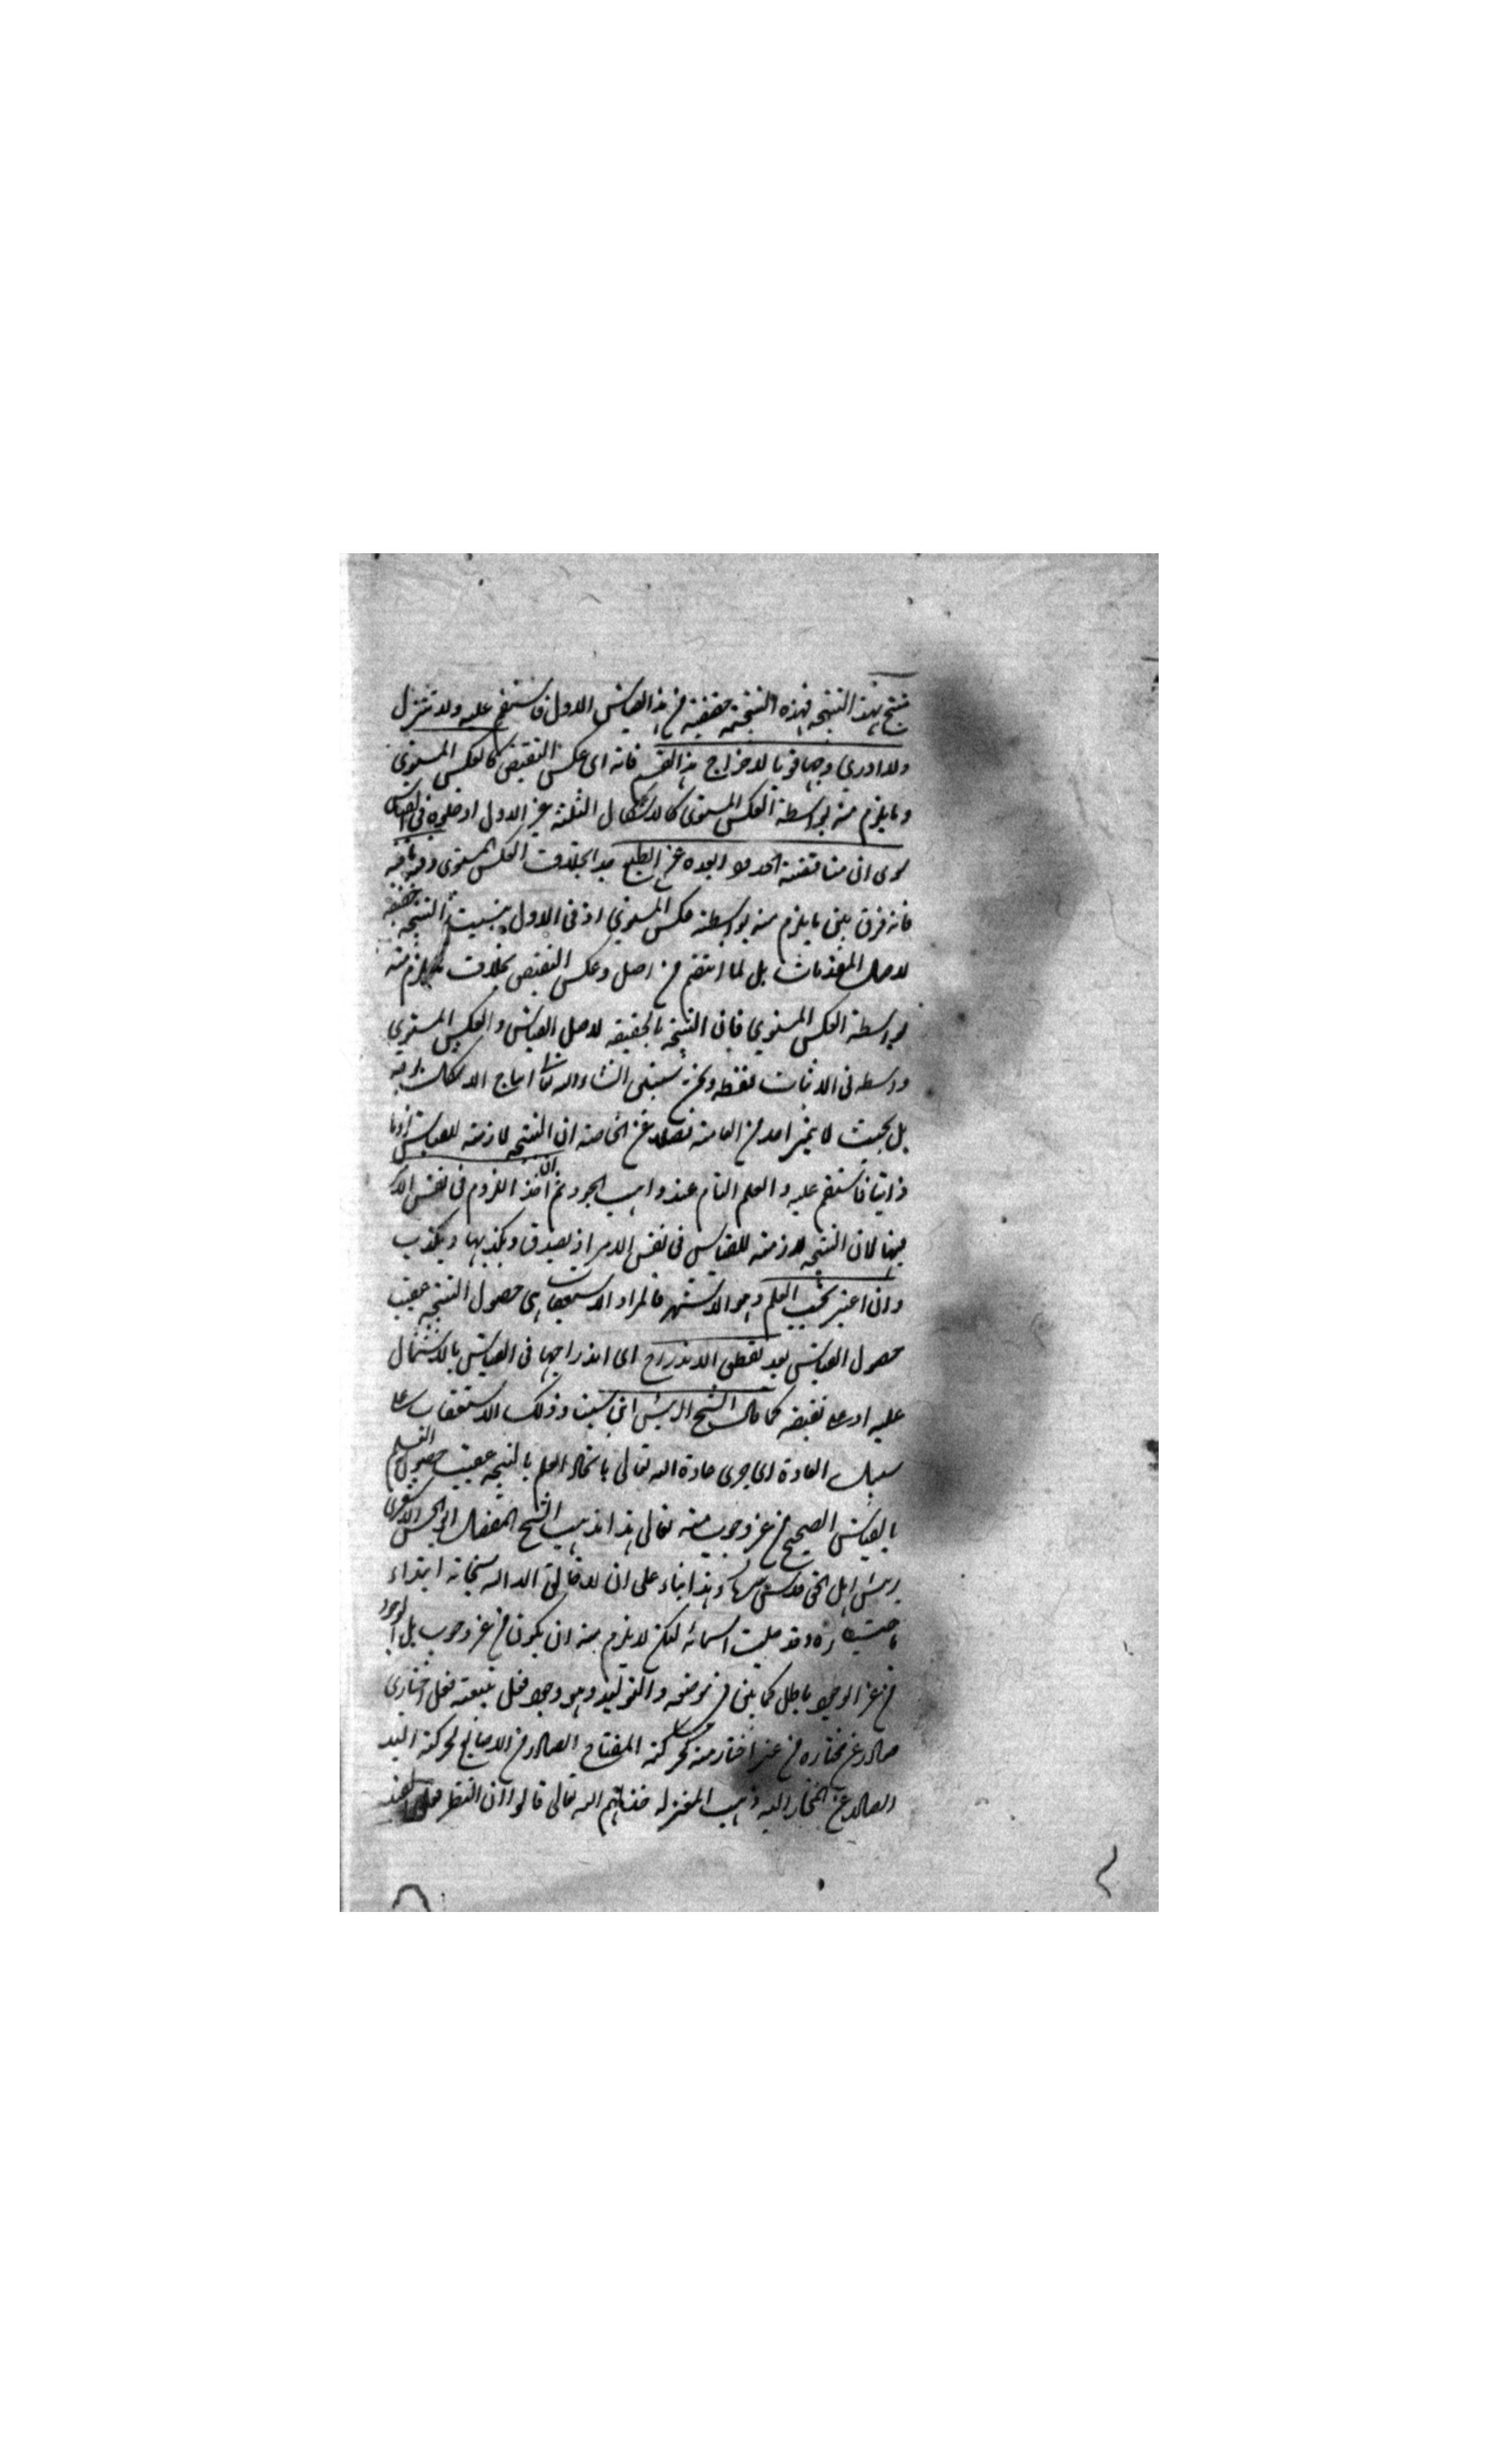 ينتج بهذا النتيجة فهذه النتيجة حقيقية من هذا القياس الاول فاستقم عليه ولا تتزل
ولا ادري وجها قويا لاخراج هذا القسم فانه اى عكس النقيض كالعكس المستوي
وما يلزم منه بواسطة العكس المستوى كالاشكال الثلثة غير الاول ادخلوه فى القياس
سوى ان مناقضة الحدود ابعده عن الطبع جدا بخلاف العكس المستوى وفيه ما فيه
فانه فرق بين ما يلزم منه بواسطة عكس المستوي اذ فى الاول ليست النتيجة حقيقة
لاصل المقدمات بل لما انتظم من اصل وعكس النقيض بخلاف ما يلزم منه
بواسطة العكس المستوي فان النتيجة بالحقيقة لاصل القياس والعكس المستوي
واسطه فى الاثبات فقط ونحن سنبين انشاء الله تعا انتاج الاشكال
بل بحيث لا يتحير احد من العامة فضلا عن الخاصة ان النتيجة لازمة للقياس لزوما
ذاتيا فاستقم عليه والعلم التام عند واهب الجود ثم ان اخذ اللزوم فى نفس الامر
فيها لان النتيجة لازمة للقياس فى نفس الامر اذ يصدق وبكذبها ويكذب
وان اعتبر بحسب العلم وهو الاشهر فالمراد الاستعقاب اى حصول النتيجة عقيب
حصول القياس بعد تفطن الاندراج اى اندراجها فى القياس بالاشتمال
عليه او على نقيضه كما قال الشيخ الرئيس ابن سينا وذلك الاستعقاب على
سبيل العادة اى جرى عادة الله تعالى بايجاد العلم بالنتيجة عقيب حصول العلم
بالقياس الصحيح من غير وجوب منه تعالى هذا مذهب الشيخ المفضل ابو الحسن الاشعرى
رئيس اهل الحق قدس سره وهذا بناء على ان لا خالق الا الله سبحانه ابتداء
وقد علمت اسمائه لكن لا يلزم منه ان يكون من غير وجوب بل الوجود
من غير الوجوب باطل كما بين فى موضعه والتوليد وهو وجود فعل يتبعه فعل اختيارى
صادر عن مختاره من غير اختار منه كحركة المفتاح الصادر من الاصابع لحركة اليد
الصادر عن المختار اليه ذهب المعتزلة خذلهم الله تعالى قالوا ان النظر فعل العبد